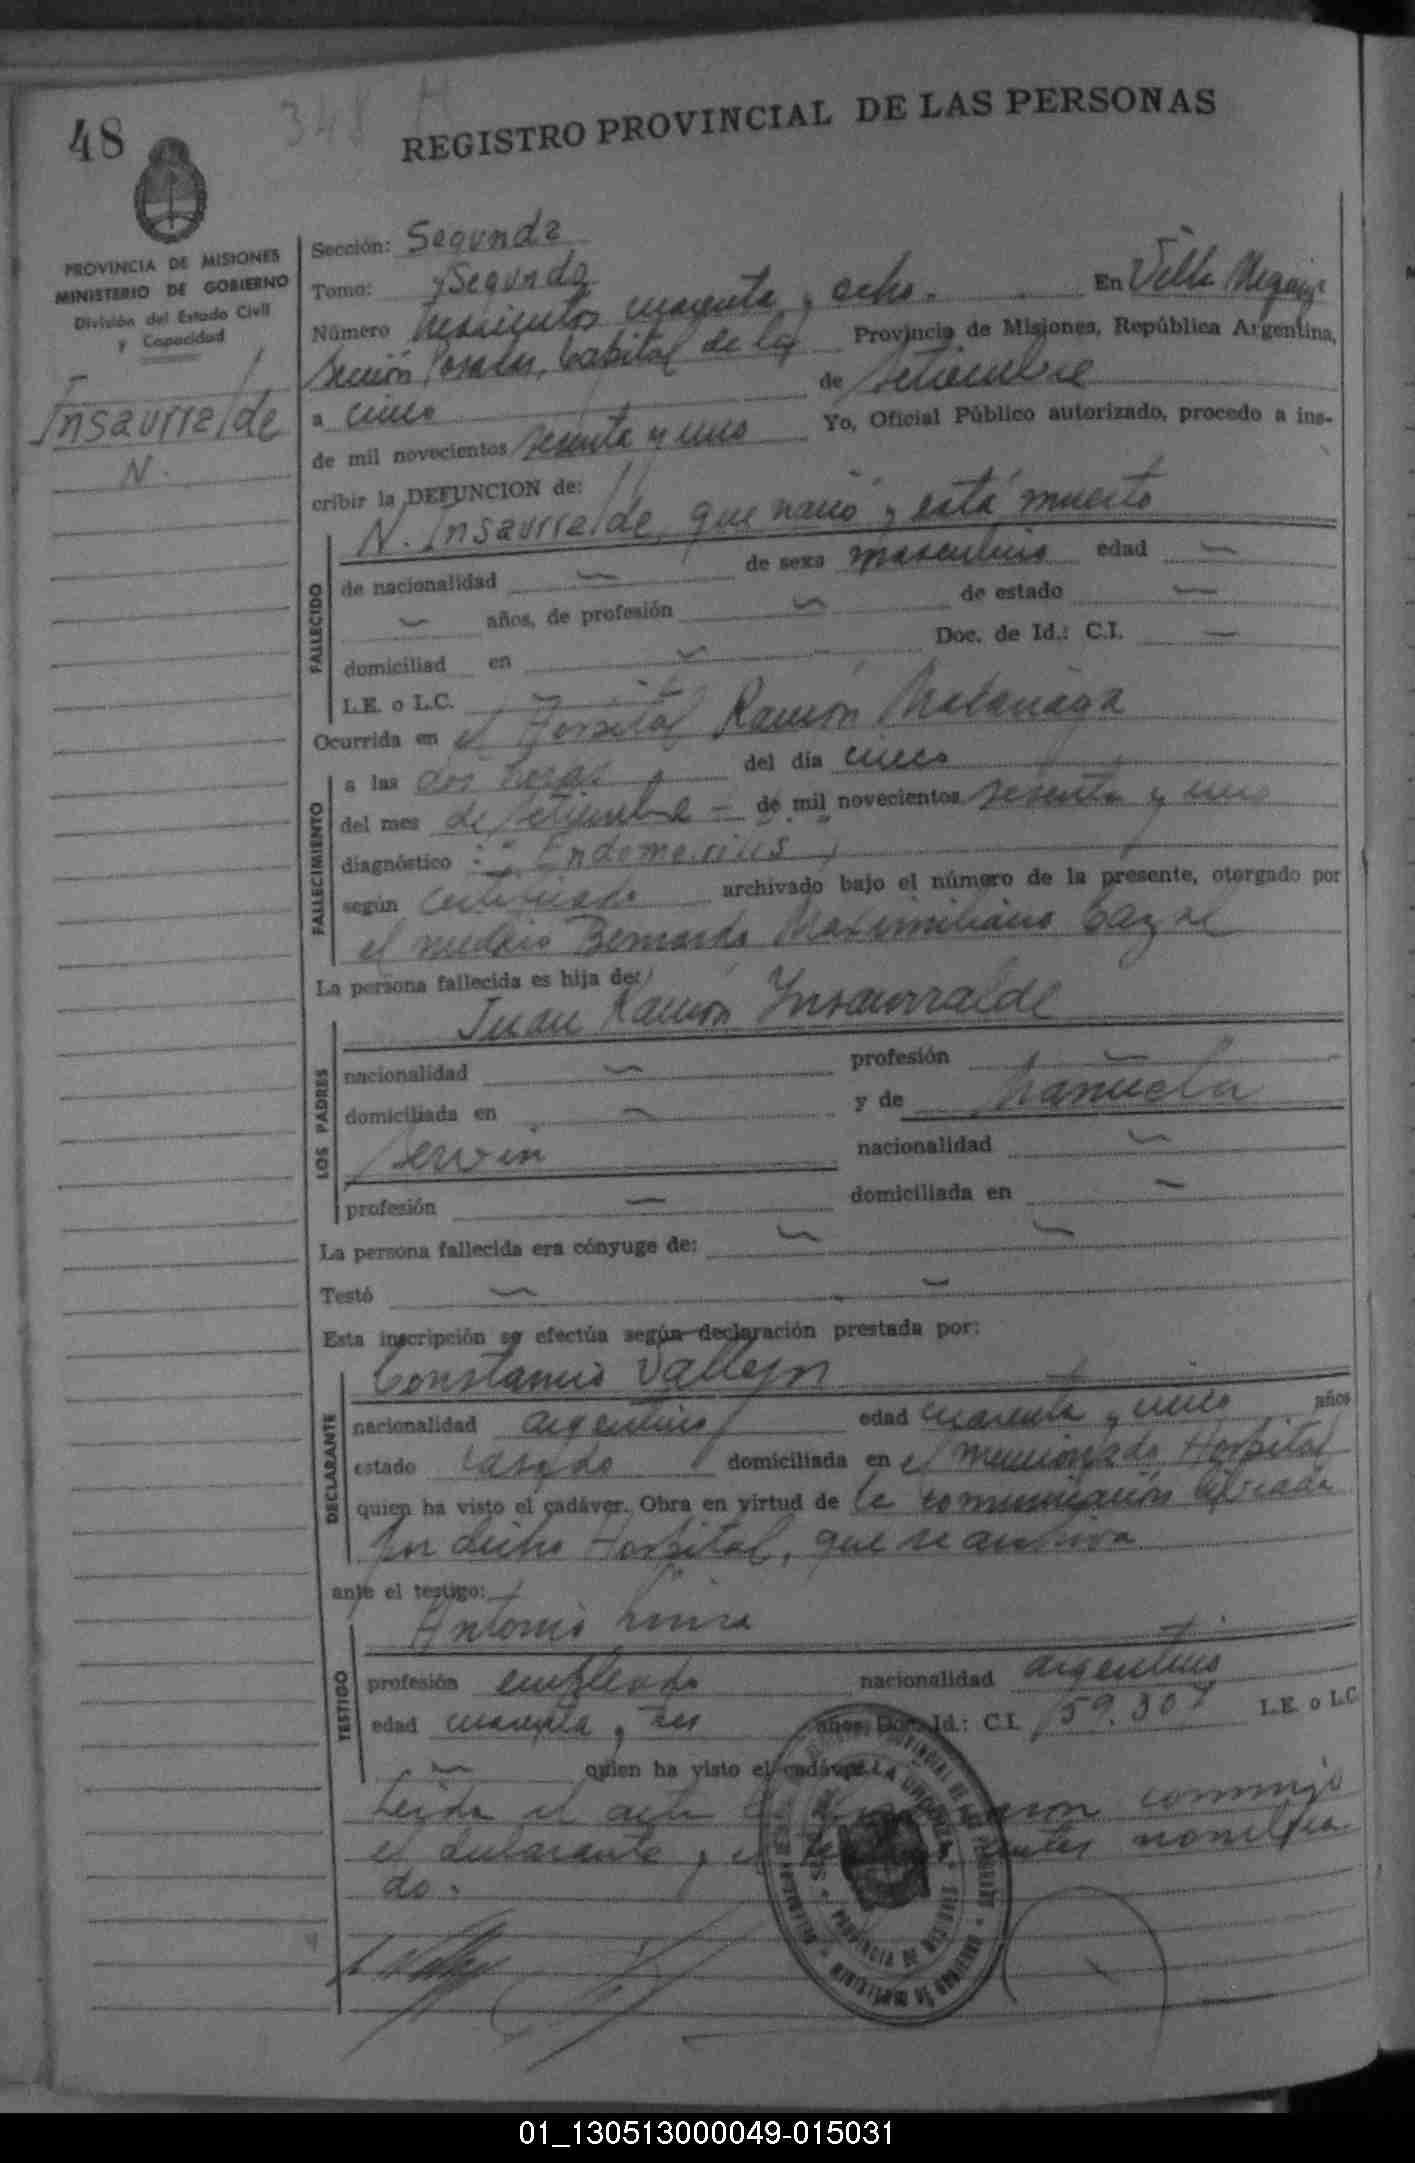 48
348 A
REGISTRO PROVINCIAL DE LAS PERSONAS
PROVINCIA DE MISIONES
MINISTERIO DE GOBIERNO
División del Estado Civil
y Capacidad
Insaurralde
N.
Sección: Segunda
Tomo: Segunda
Número trescientos cuarenta y ocho. En Villa
Sección Posadas, Capital de la Provincia de Misiones, República Argentina,
a cinco de setiembre
de mil novecientos sesenta y uno Yo, Oficial Público autorizado, procedo a ins-
cribir la DEFUNCION de:
N. Insaurralde, que nació y está muerto
FALLECIDO
de nacionalidad de sexo masculino edad
años, de profesión de estado
domiciliad en Doc. de Id.: C.I.
L.E. o L.C.
Ocurrida en el Hospital Ramón Madariaga
FALLECIMIENTO
a las dos horas del día cinco
del mes de setiembre de mil novecientos sesenta y uno
diagnóstico :
según certificado archivado bajo el número de la presente, otorgado por
el médico Bernardo Maximiliano Cazal
La persona fallecida es hija de:
LOS PADRES
Juan Ramón Insaurralde
nacionalidad profesión
domiciliada en y de Manuela
Servin nacionalidad
profesión domiciliada en
La persona fallecida era cónyuge de:
Testó
Esta inscripción se efectúa según declaración prestada por:
DECLARANTE
Constancio Vallejos
nacionalidad argentino edad cuarenta y cinco años
estado casado domiciliada en el mencionado Hospital
quien ha visto el cadáver. Obra en virtud de la comunicación librada
por dicho Hospital, que se archiva
ante el testigo:
TESTIGO
Antonio
profesión empleado nacionalidad argentino
edad cuarenta y tres años, Doc. Id.: C.I. 159.307 L.E. o L.C.
quien ha visto el cadáver.
Leída el acta conmigo
el declarante y el nombra
do.
PROVINCIA DE MISIONES
01_130513000049-015031